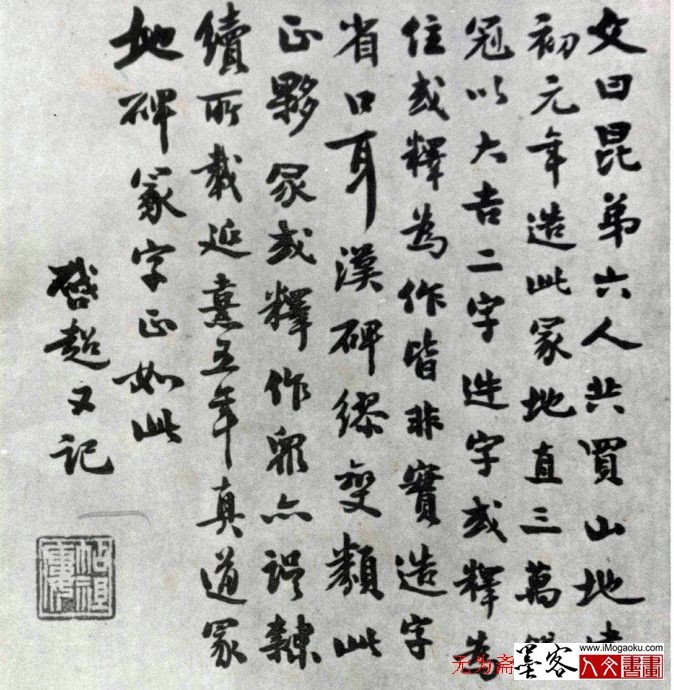 文曰昆弟六人共買山地建
初元年造此冢地直三萬錢
冠以大吉二字造字或釋為
住或釋為作皆非實造字
省口耳漢碑繆變類此
正夥冢或釋作眾亦誤隸
續所載延熹五年真道冢
地碑冢字正如此
啓超又記
无为斋
墨客
www.iMogaoku.com
人文書畫